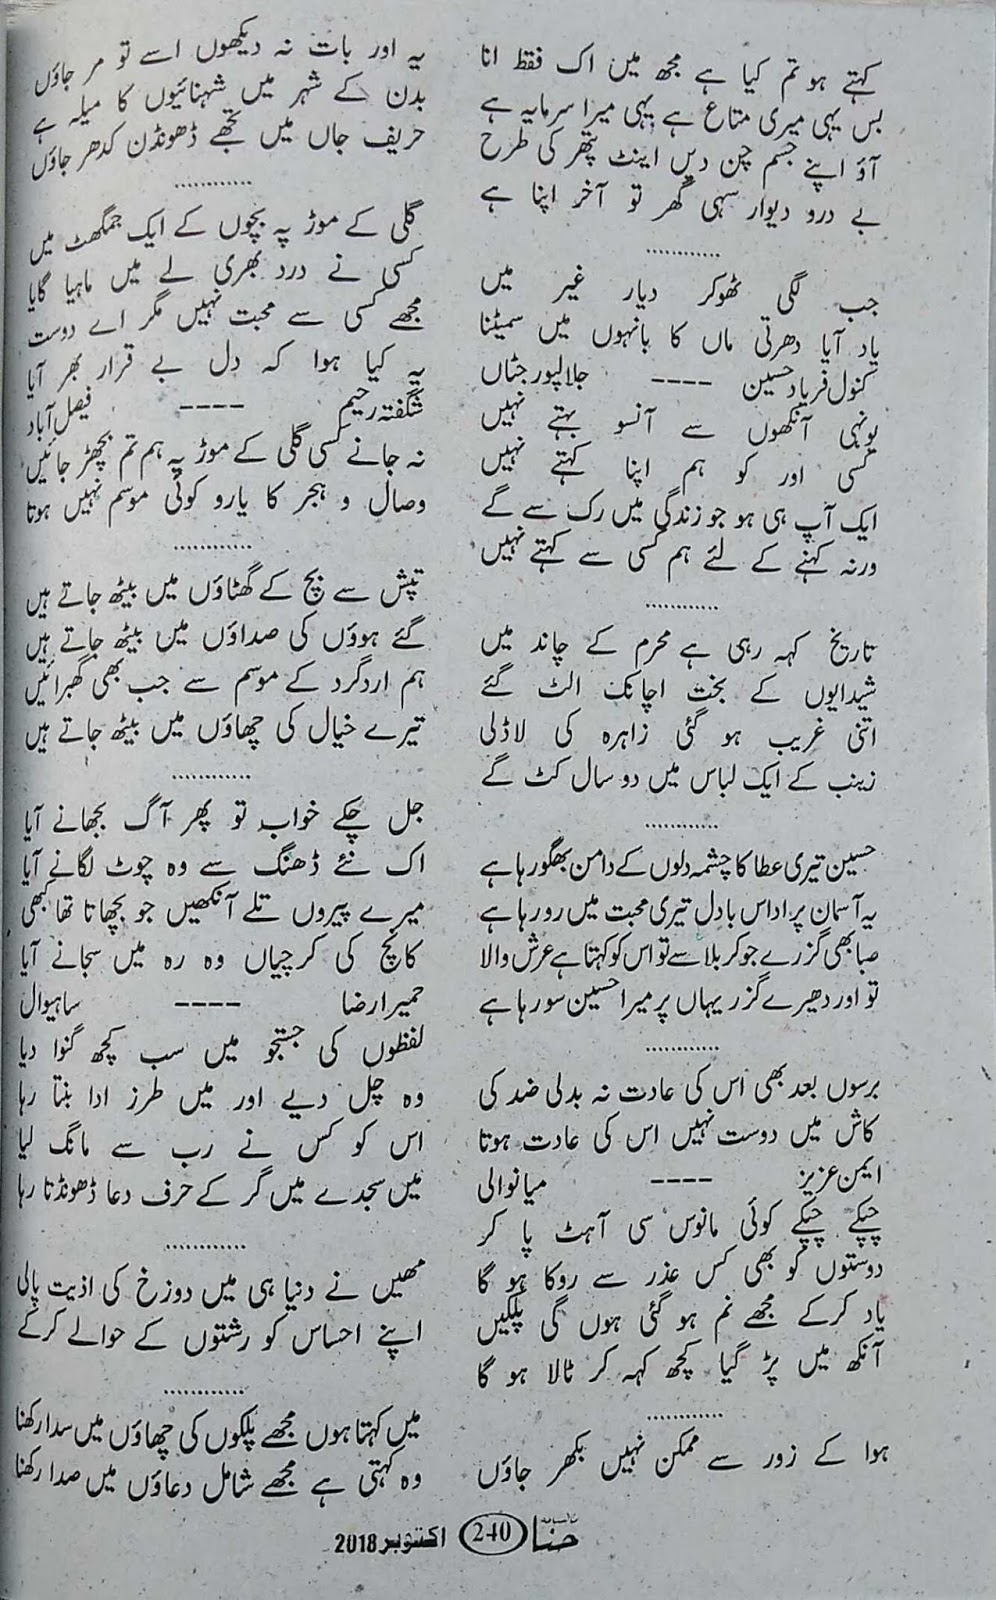 کہتے ہو تم کیا ہے مجھ میں اک فقط انا
بس یہی میری متاع ہے یہی میرا سرمایہ ہے
آؤ اپنے جسم چن دیں اینٹ پتھر کی طرح
بے درو دیوار سہی گھر تو آخر اپنا ہے
............
جب لگی ٹھوکر دیار غیر میں
یاد آیا دھرتی ماں کا بانہوں میں سمیٹنا
کنول فریاد حسین ---- جلالپور جٹاں
یونہی آنکھوں سے آنسو بہتے نہیں
کسی اور کو ہم اپنا کہتے نہیں
ایک آپ ہی ہو جو زندگی میں رک سے گے
ورنہ کہنے کے لئے ہم کسی سے کہتے نہیں
............
تاریخ کہہ رہی ہے محرم کے چاند میں
شیدایوں کے بخت اچانک الٹ گئے
اتنی غریب ہو گئی زاہرہ کی لاڈلی
زینب کے ایک لباس میں دو سال کٹ گے
............
حسین تیری عطا کا چشمہ دلوں کے دامن بھگو رہا ہے
یہ آسمان پر اداس بادل تیری محبت میں رو رہا ہے
صبا بھی گزرے جو کربلا سے تو اس کو کہتا ہے عرش والا
تو اور دھیرے گزر یہاں پر میرا حسین سو رہا ہے
............
برسوں بعد بھی اس کی عادت نہ بدلی ضد کی
کاش میں دوست نہیں اس کی عادت ہوتا
ایمن عزیز ---- میانوالی
چپکے چپکے کوئی مانوس سی آہٹ پا کر
دوستوں کو بھی کس عذر سے روکا ہو گا
یاد کر کے مجھے نم ہو گئی ہوں گی پلکیں
آنکھ میں پڑ گیا کچھ کہہ کر ٹالا ہو گا
............
ہوا کے زور سے ممکن نہیں بکھر جاؤں
یہ اور بات نہ دیکھوں اسے تو مر جاؤں
بدن کے شہر میں شہنائیوں کا میلہ ہے
حریف جاں میں تجھے ڈھونڈن کدھر جاؤں
............
گلی کے موڑ پہ بچوں کے ایک جمگھٹ میں
کسی نے درد بھری لے میں ماہیا گایا
مجھے کسی سے محبت نہیں مگر اے دوست
یہ کیا ہوا کہ دل بے قرار بھر آیا
شگفتہ رحیم ---- فیصل آباد
نہ جانے کسی گلی کے موڑ پہ ہم تم بچھڑ جائیں
وصال و ہجر کا یارو کوئی موسم نہیں ہوتا
............
تپش سے بچ کے گھٹاؤں میں بیٹھ جاتے ہیں
گئے ہووؤں کی صداؤں میں بیٹھ جاتے ہیں
ہم اردگرد کے موسم سے جب بھی گھبرائیں
تیرے خیال کی چھاؤں میں بیٹھ جاتے ہیں
............
جل چکے خواب تو پھر آگ بجھانے آیا
اک نئے ڈھنگ سے وہ چوٹ لگانے آیا
میرے پیروں تلے آنکھیں جو بچھاتا تھا کبھی
کانچ کی کرچیاں وہ رہ میں سجانے آیا
حمیرا رضا ---- ساہیوال
لفظوں کی جستجو میں سب کچھ گنوا دیا
وہ چل دیے اور میں طرز ادا بنتا رہا
اس کو کس نے رب سے مانگ لیا
میں سجدے میں گر کے حرف دعا ڈھونڈتا رہا
............
مھیں نے دنیا ہی میں دوزخ کی اذیت پالی
اپنے احساس کو رشتوں کے حوالے کرکے
............
میں کہتا ہوں مجھے پلکوں کی چھاؤں میں سدا رکھنا
وہ کہتی ہے مجھے شامل دعاؤں میں صدا رکھنا
ماہنامہ حنا 240 اکتوبر 2018